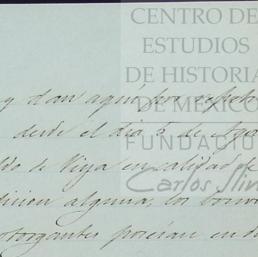 CENTRO DE
ESTUDIOS
DE HISTORIA
DE MÉXICO
FUNDACIÓN
Carlos Slim
y dan aquí por
desde el dia 5 de
de Vega en calidad de
alguna, los
otorgantes poseían en